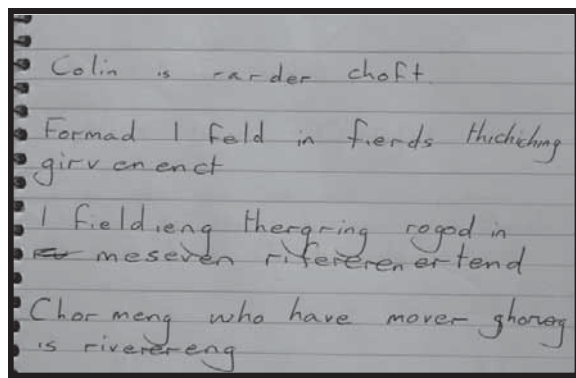 Colin is rarder choft.
Formad I feld in fierds thichiching
girvenenct
I fieldieng thergring rogod in
meseven rifererenertend
Chormeng who have mover ghoreg
is riverereng